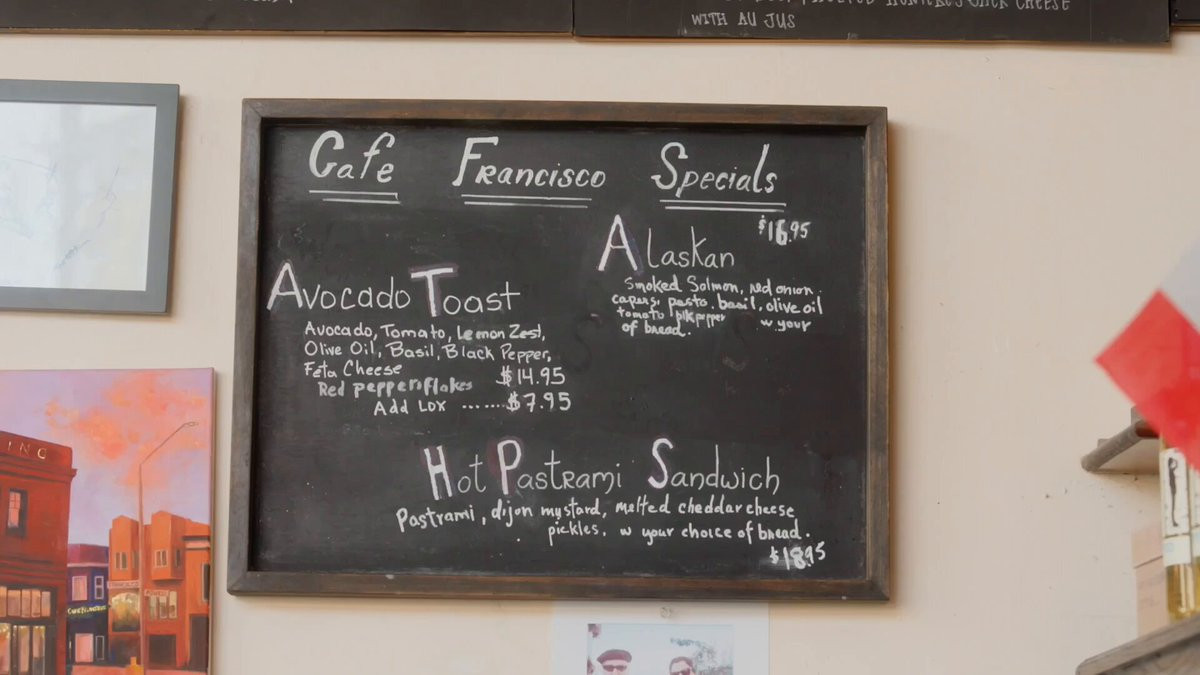 WITH AU JUS
Cafe Francisco Specials
Avocado Toast
Avocado, Tomato, Lemon Zest,
Olive Oil, Basil, Black Pepper,
Feta Cheese $14.95
Red pepper flakes
Add Lox ....... $7.95
Alaskan $16.95
Smoked Salmon, red onion.
capers, pesto, basil, olive oil
tomato blk pepper w your
of bread.
Hot Pastrami Sandwich
Pastrami, dijon mystard, melted cheddar cheese
pickles. w your choice of bread.
$18.95